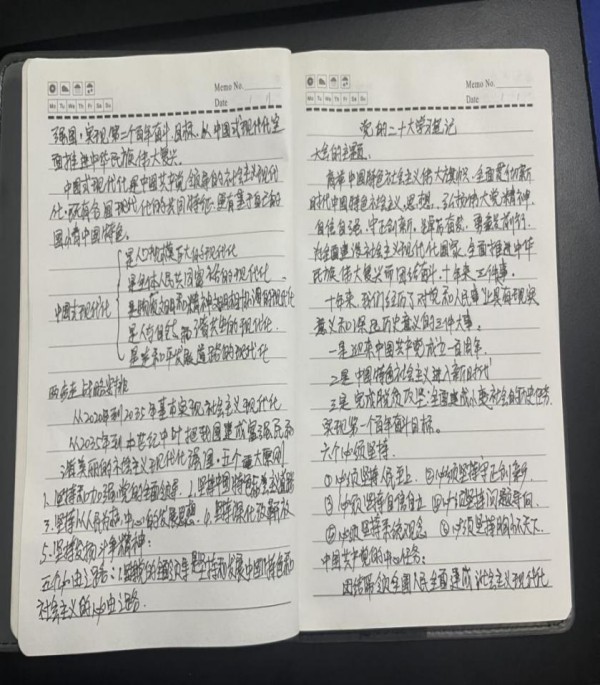 Memo No.
Mo Tu We Th Fr Sa Su
Date
强国，实现第二个百年奋斗目标，以中国式现代化全
面推进中华民族伟大复兴。
中国式现代化是中国共产党领导的社会主义现代
化，既有各国现代化的共同特征，更有基于自己的
国情中国特色。
中国式现代化
是人口规模巨大的现代化
是全体人民共同富裕的现代化
是物质文明和精神文明相协调的现代化
是人与自然和谐共生的现代化
是走和平发展道路的现代化
两步走战略安排
从2020年到2035年基本实现社会主义现代化
从2035年到本世纪中叶把我国建成富强民主
文明和谐美丽的社会主义现代化强国，五个重大原则
1.坚持和加强党的全面领导 2.坚持中国特色社会主义道路
3.坚持以人民为中心的发展思想 4.坚持深化改革开放
5.坚持发扬斗争精神；
五个必由之路：1.坚持党的全面领导是坚持和发展中国特色
社会主义的必由之路.
Memo No.
Mo Tu We Th Fr Sa Su
Date
党的二十大学习笔记
大会的主题
高举中国特色社会主义伟大旗帜，全面贯彻新
时代中国特色社会主义思想，弘扬伟大建党精神，
自信自强、守正创新，踔厉奋发、勇毅前行，
为全面建设社会主义现代化国家、全面推进中华
民族伟大复兴而团结奋斗，十年来三件事。
十年来，我们经历了对党和人民事业具有现实
意义和深远历史意义的三件大事。
一是迎来中国共产党成立一百周年.
二是中国特色社会主义进入新时代
三是完成脱贫攻坚、全面建成小康社会的历史任务，
实现第一个百年奋斗目标。
六个必须坚持.
①必须坚持人民至上. ②必须坚持自信自立
③必须坚持守正创新 ④必须坚持问题导向
⑤必须坚持系统观念 ⑥必须坚持胸怀天下.
中国共产党的中心任务：
团结带领全国人民全面建成社会主义现代化